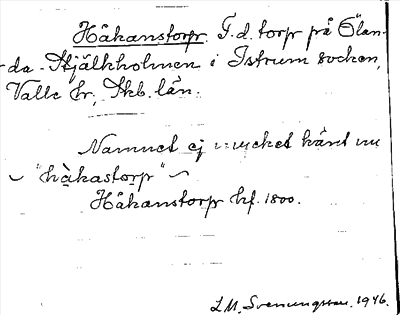 Håkanstorp. F.d. torp på Ölan-
da-Stjälkholmen i Istrum socken,
Valle hr, Skb. län.
Namnet ej mycket känt nu
~ "hàkastorp" ~
Håkanstorp hf. 1800.
L.M. Svenungsson. 1946.